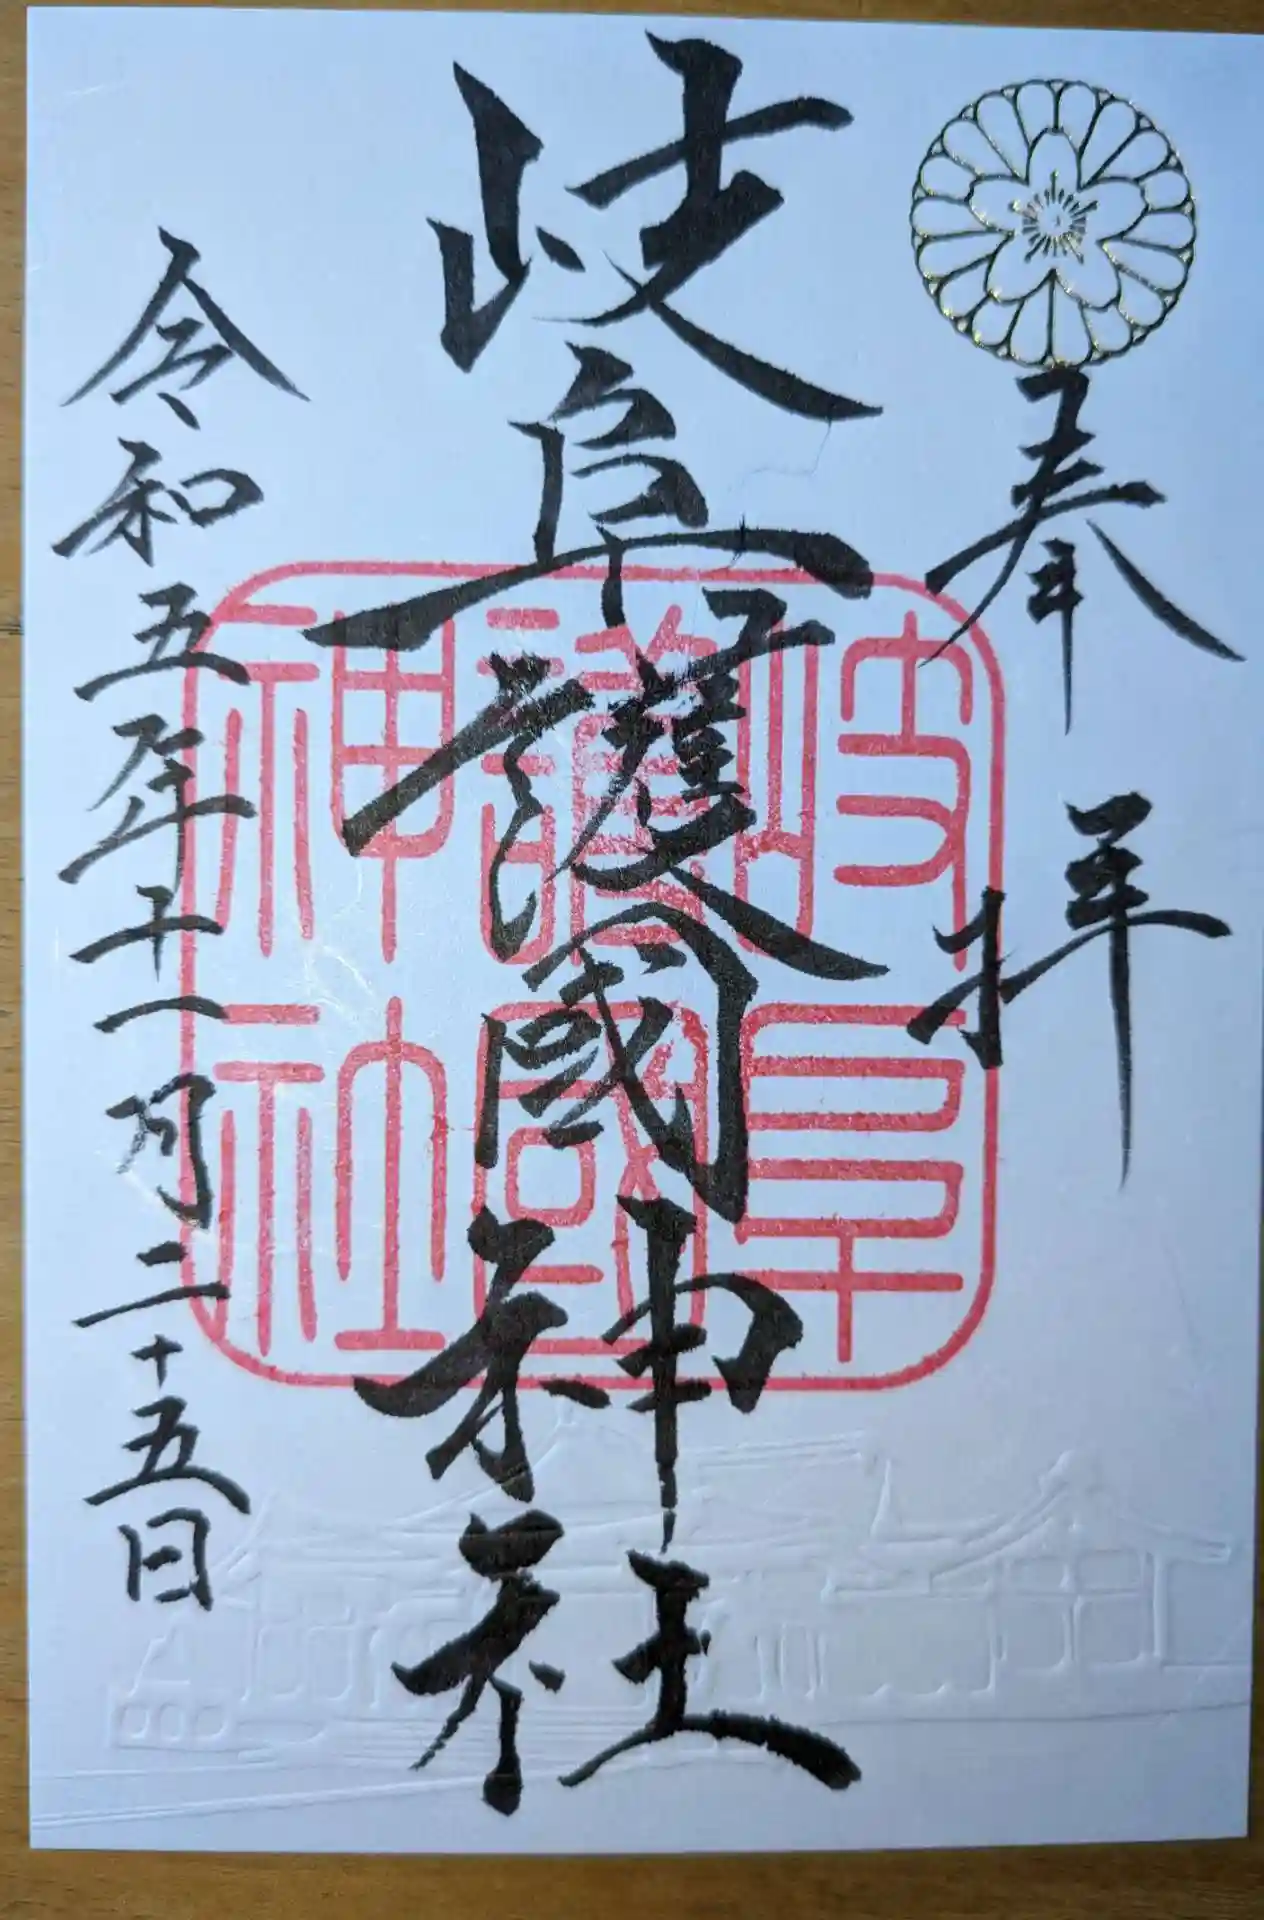 奉拝
岐阜護國神社
令和五年十一月二十五日
岐阜
護國
神社